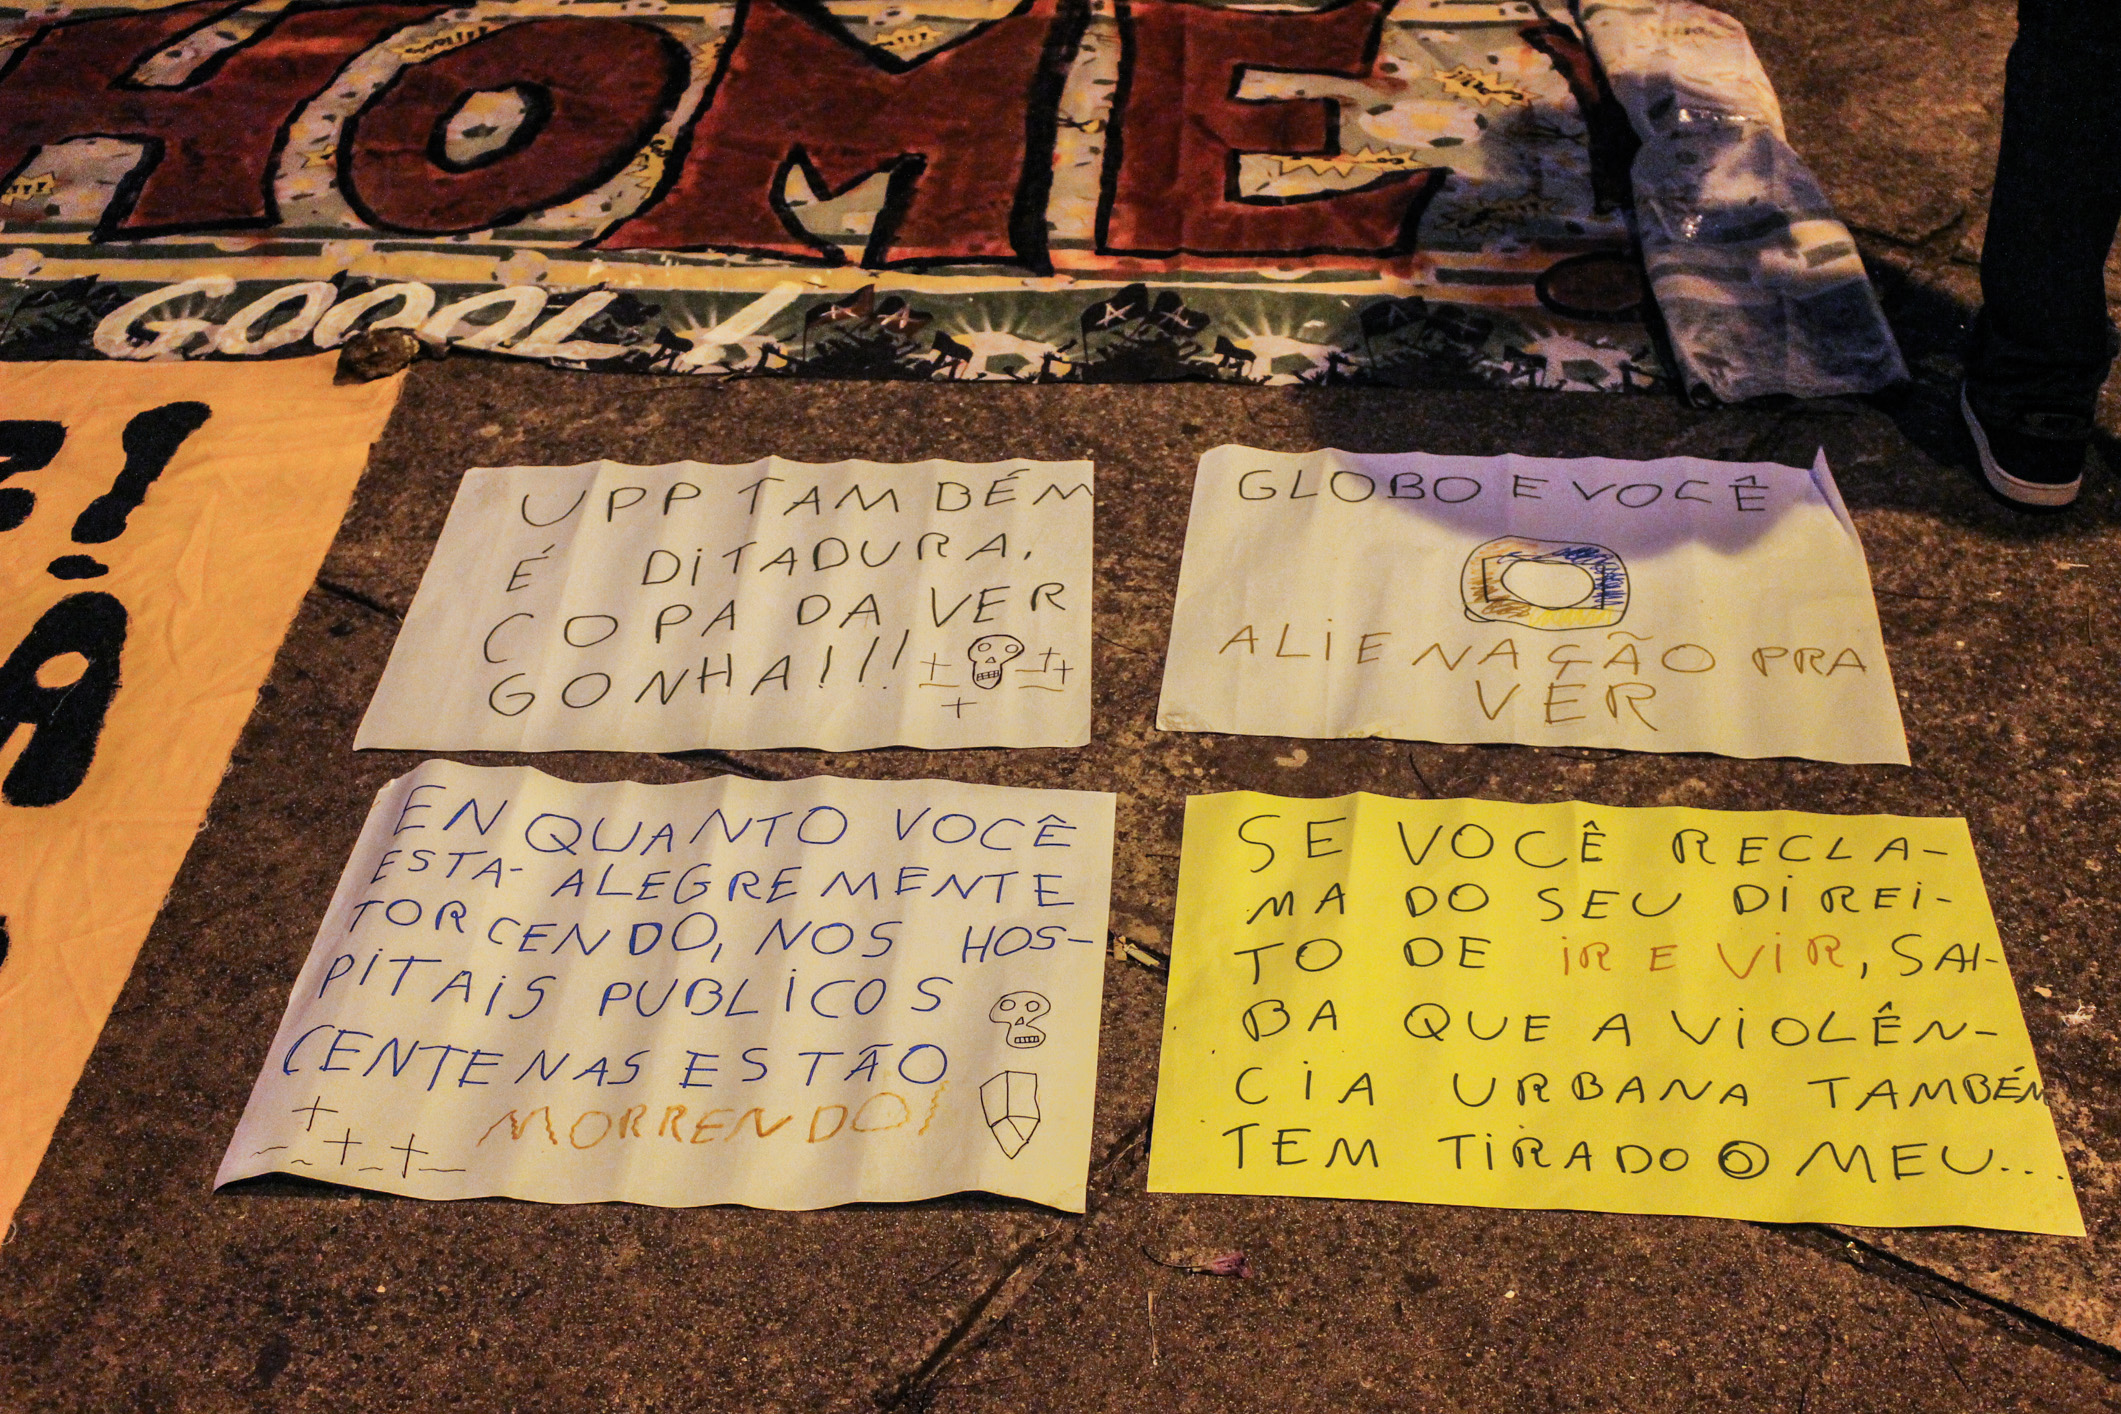 HOME!
GOOOL!
!
A
UPP TAMBÉM
É DITADURA.
COPA DA VER
GONHA!!!
GLOBO E VOCÊ
ALIENAÇÃO PRA
VER
ENQUANTO VOCÊ
ESTA- ALEGREMENTE
TORCENDO, NOS HOS-
PITAIS PUBLICOS
CENTENAS ESTÃO
MORRENDO!
SE VOCÊ RECLA-
MA DO SEU DIREI-
TO DE IR E VIR, SAI-
BA QUE A VIOLÊN-
CIA URBANA TAMBÉM
TEM TIRADO O MEU...